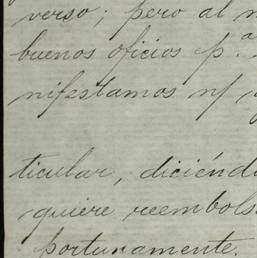 verso; pero al
buenos oficios p.ª
nifestamos n/
ticular, diciénd
quiere reembols
portunamente.